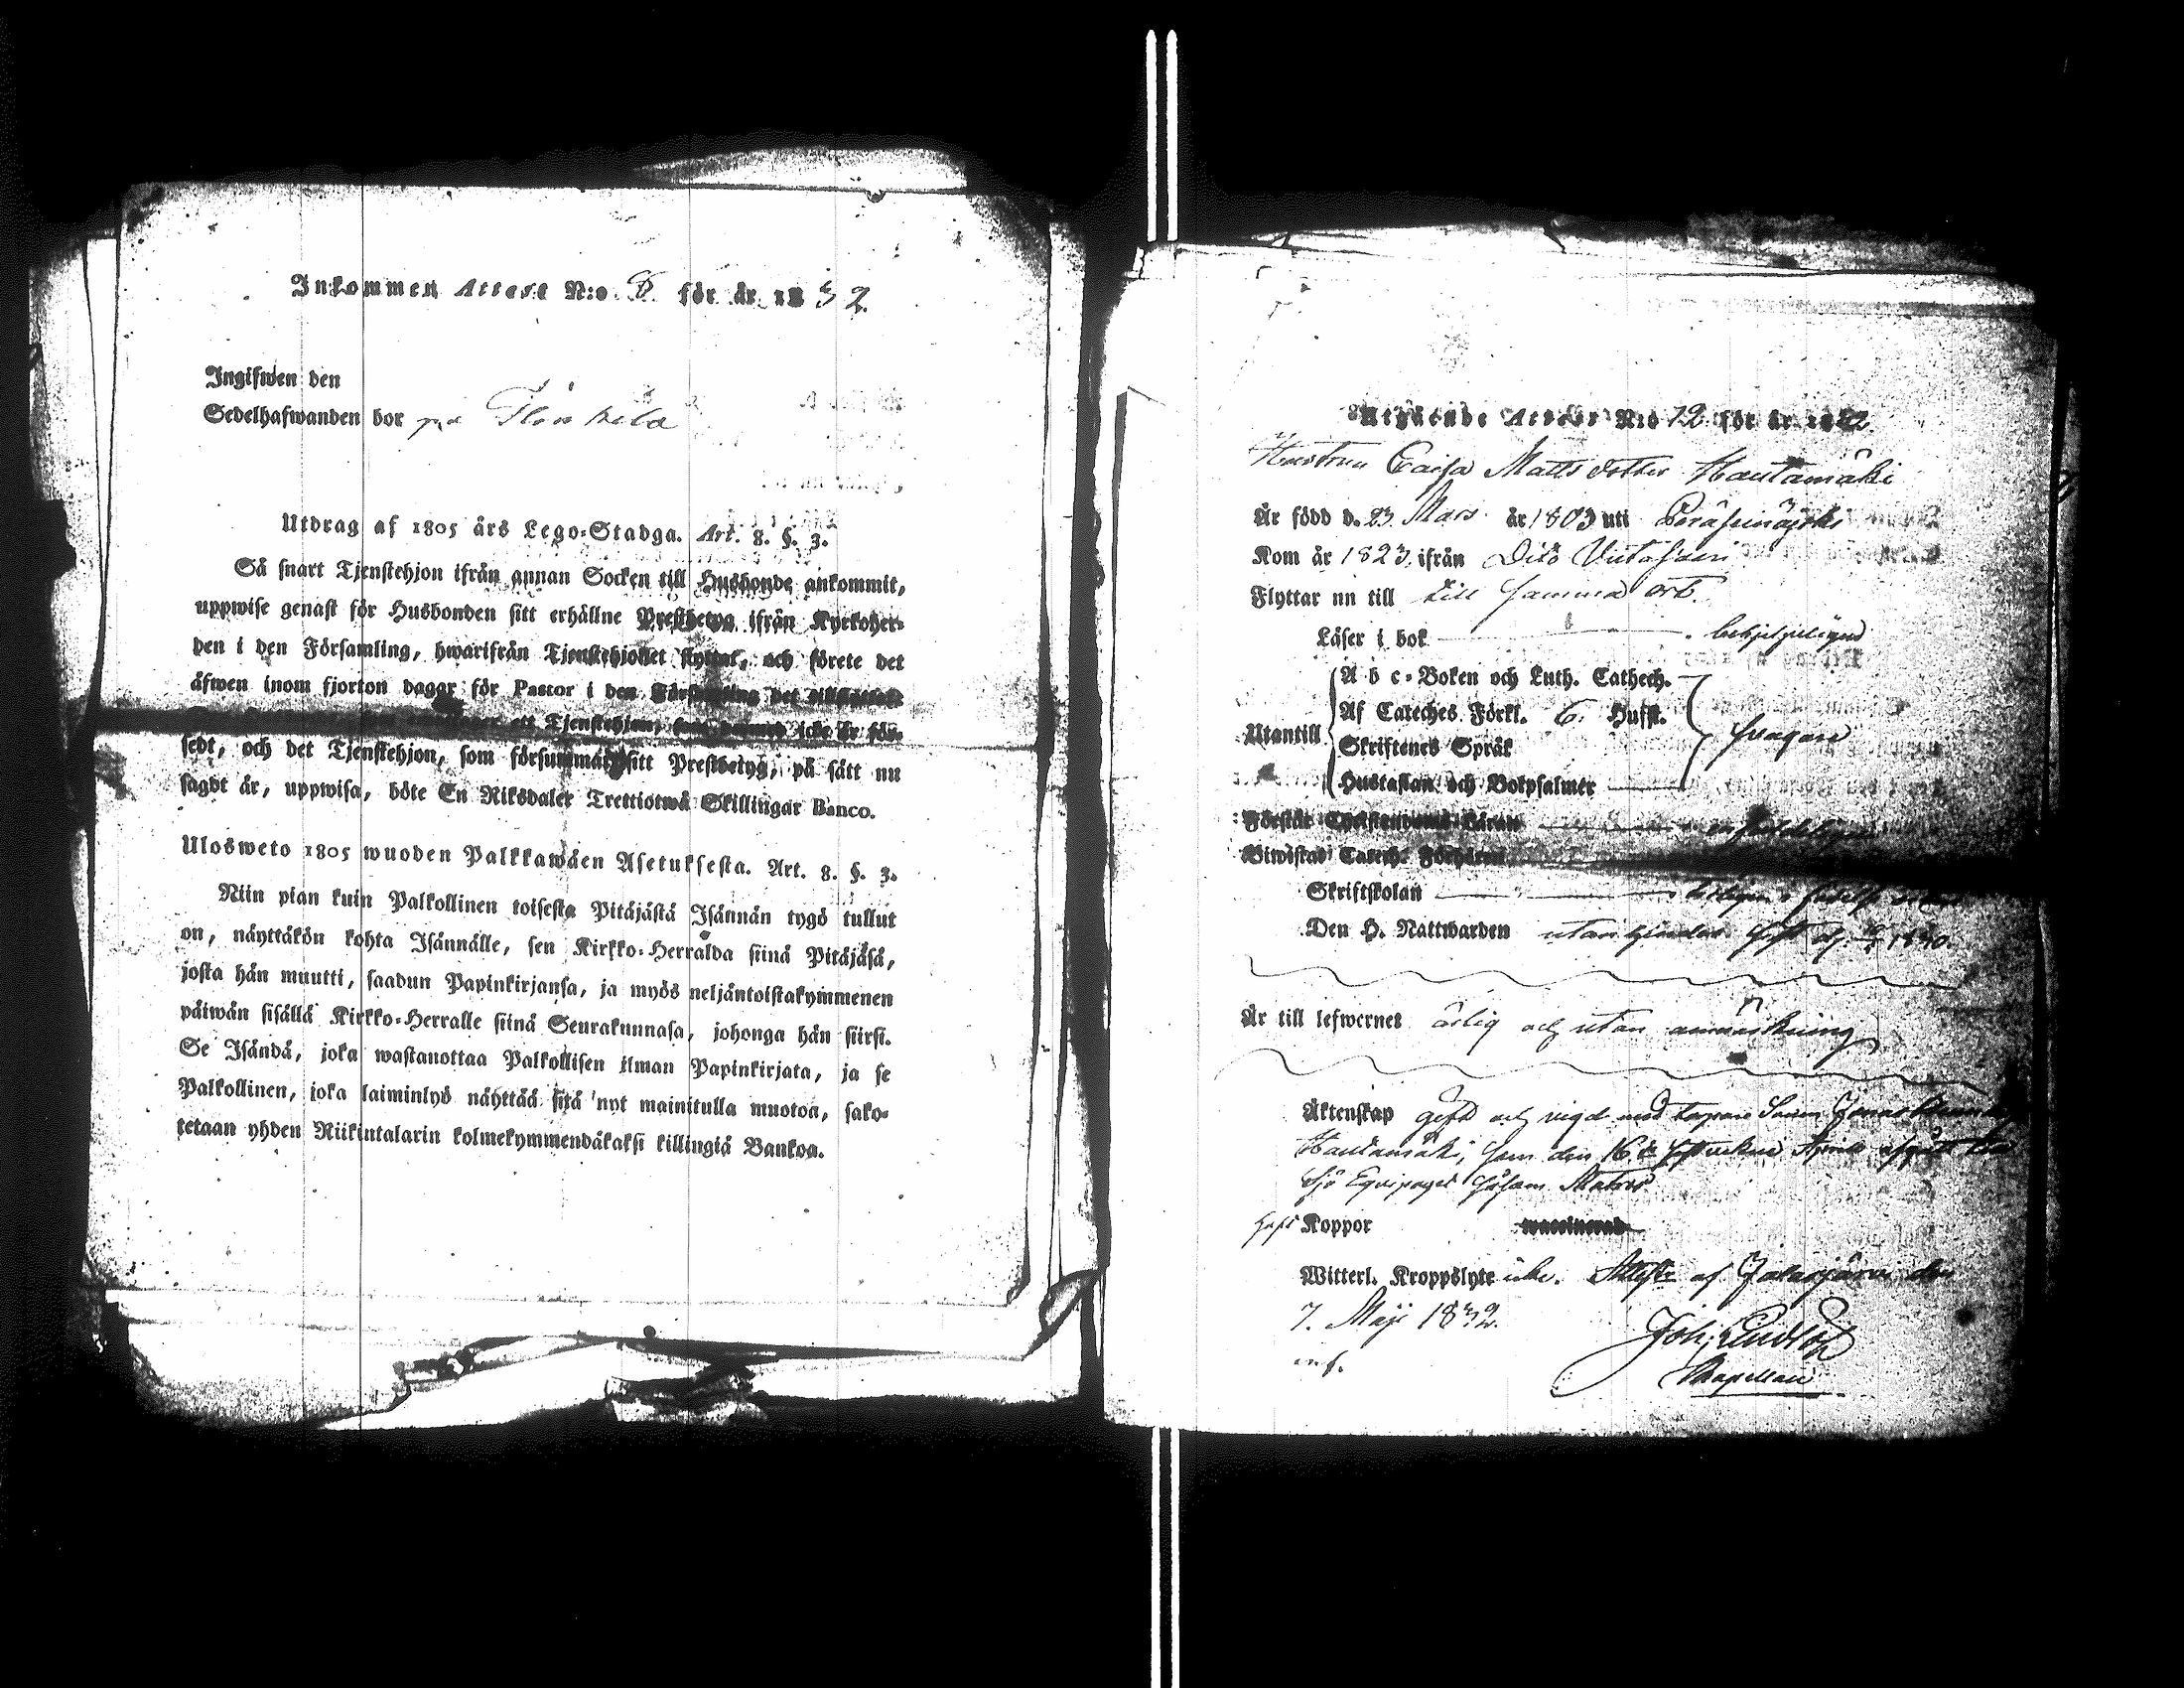 Inkommen Attest N:o 8. för år 1832.
Ingifwen den
Sedelhafwanden bor på
Utdrag af 1805 års Lego-Stadga. Art. 8. §. 3.
Så snart Tjenstehjon ifrån annan Socken till Husbonde ankommit,
uppwise genast för Husbonden sitt erhållne Prestbetyg ifrån Kyrkoher-
den i den Församling, hwarifrån Tjenstehjonet flyttat, och förete det
äfwen inom fjorton dagar för Pastor i den Församling det tillflyttat.
ett Tjenstehjon, som dermed icke är för-
sedt, och det Tjenstehjon, som försummar sitt Prestbetyg, på sätt nu
sagdt är, uppwisa, böte En Riksdaler Trettiotwå Skillingar Banco.
Ulosweto 1805 wuoden Palkkawäen Asetuksesta. Art. 8. §. 3.
Niin pian kuin Palkollinen toisesta Pitäjästä Isännän tygö tullut
on, näyttäkön kohta Isännälle, sen Kirkko-Herralda siinä Pitäjäsä,
josta hän muutti, saadun Papinkirjansa, ja myös neljäntoistakymmenen
päiwän sisällä Kirkko-Herralle siinä Seurakunnasa, johonga hän siirsi.
Se Isändä, joka wastanottaa Palkollisen ilman Papinkirjata, ja se
Palkollinen, joka laiminlyö näyttää sitä nyt mainitulla muotoa, sako-
tetaan yhden Riikintalarin kolmekymmendäkaksi killingiä Bankoa.
Utgående Attest N:o 12 för år 1832.
Hustrun Caisa Matts dotter Hautamäki
Är född d. 23 Mars år 1803 uti Peräseinäjoki
Kom år 1823 ifrån Dito
Flyttar nu till till samma ort.
Läser i bok behjelpeligen
Utantill
A b c-Boken och Luth. Cathech.
Af Cateches. Förkl. 6. Hufst.
Skriftenes Språk
Hustaflan och Botpsalmer
svagare
Förstår Christendoms Läran enfaldeligen
Biwistat Catech. Förhören
Skriftskolan
Den H. Nattwarden utan hinder sist d. 1830.
Är till lefwernet ärlig och utan anmärkning
Äktenskap gift och vigd med torpare Sonen Jonas
Hautamäki, som den 16 sistvekne Aprill afgått till
Sjö Equipaget såsom Matros
haft Koppor waccinerad
Witterl. Kroppslyte icke. Attest. af Jalasjärvi den
7. Maji 1832.
Joh. Lindlöf
Kapellan